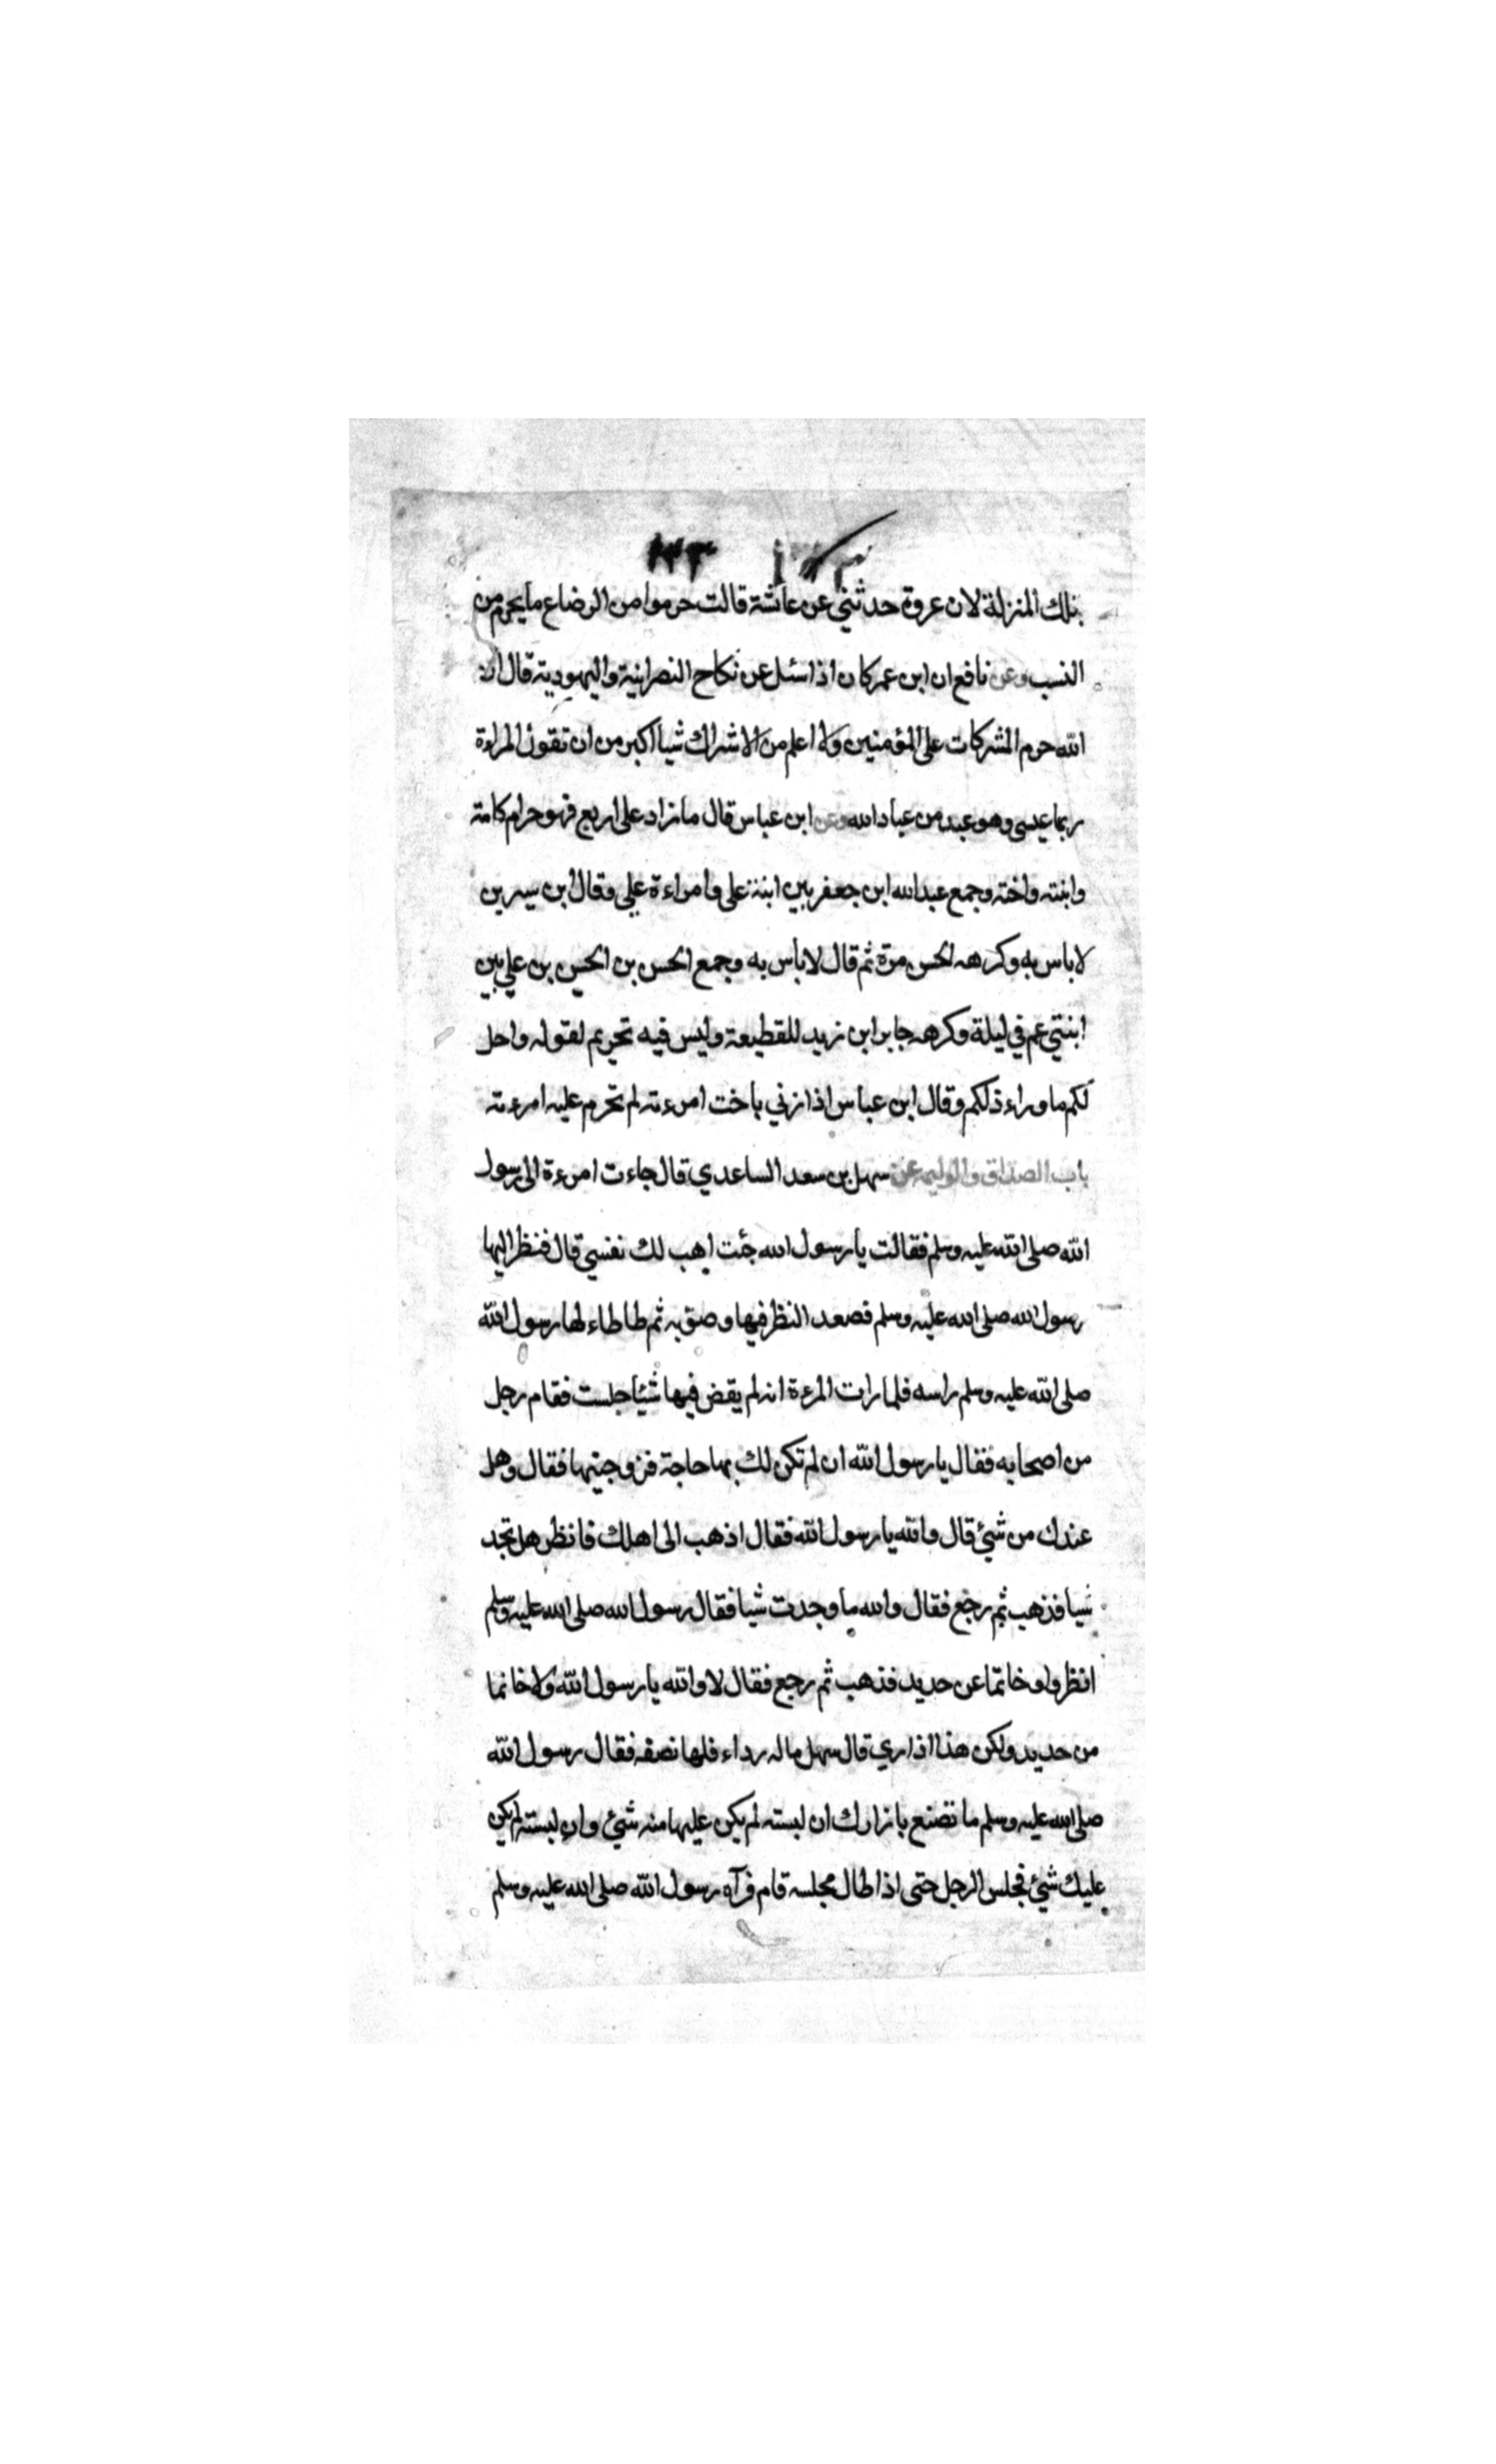 بتلك المنزلة لان عروة حدثني عن عائشة قالت حرموا من الرضاع ما يحرم من
النسب وعن نافع ان ابن عمر كان اذا سئل عن نكاح النصرانية واليهودية قال ان
الله حرم المشركات على المؤمنين ولا اعلم من الاشراك شيا اكبر من ان تقول المراءة
ربها عيسى وهو عبد من عباد الله وعن ابن عباس قال ما زاد على اربع فهو حرام كامته
وابنته واخته وجمع عبد الله ابن جعفر بين ابنة علي وامراءة علي وقال ابن سيرين
لا باس به وكرهه الحسن مرة ثم قال لا بأس به وجمع الحسن بن الحسين بن علي بين
ابنتي عم في ليلة وكرهه جابر ابن زيد للقطيعة وليس فيه تحريم لقوله واحل
لكم ما وراء ذلكم وقال ابن عباس اذا زني باخت امرءته لم تحرم عليه امرءته
باب الصداق والوليمة عن سهل بن سعد الساعدي قال جاءت امرءة الى رسول
الله صلى الله عليه وسلم فقالت يا رسول الله جئت اهب لك نفسي قال فنظر اليها
رسول الله صلى الله عليه وسلم فصعد النظر فيها وصوبه ثم طاطاء لها رسول الله
صلى الله عليه وسلم راسه فلما رات المرءة انه لم يقض فيها شيئا جلست فقام رجل
من اصحابه فقال يا رسول الله ان لم تكن لك بها حاجة فزوجنيها فقال وهل
عندك من شيئ قال والله يا رسول الله فقال اذهب الى اهلك فانظر هل تجد
شيا فذهب ثم رجع فقال والله ما وجدت شيا فقال رسول الله صلى الله عليه وسلم
انظر ولو خاتما عن حديد فذهب ثم رجع فقال لا والله يا رسول الله ولا خاتما
من حديد ولكن هذا اذاري قال سهل ما له رداء فلها نصفه فقال رسول الله
صلى الله عليه وسلم ما تصنع بازارك ان لبسته لم يكن عليها منه شيئ وان لبسته لم يكن
عليك شيئ فجلس الرجل حتى اذا طال مجلسه قام فرآه رسول الله صلى الله عليه وسلم